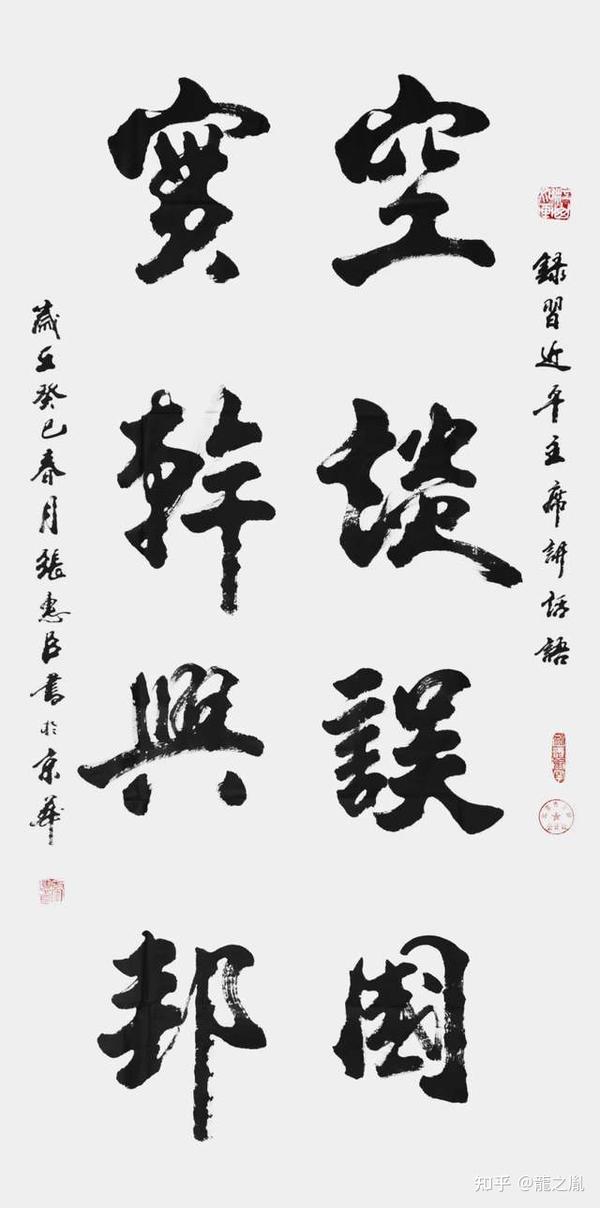 錄習近平主席講話語
空談誤國
實幹興邦
歲在癸巳春月張惠臣書於京華
知乎 @龍之胤